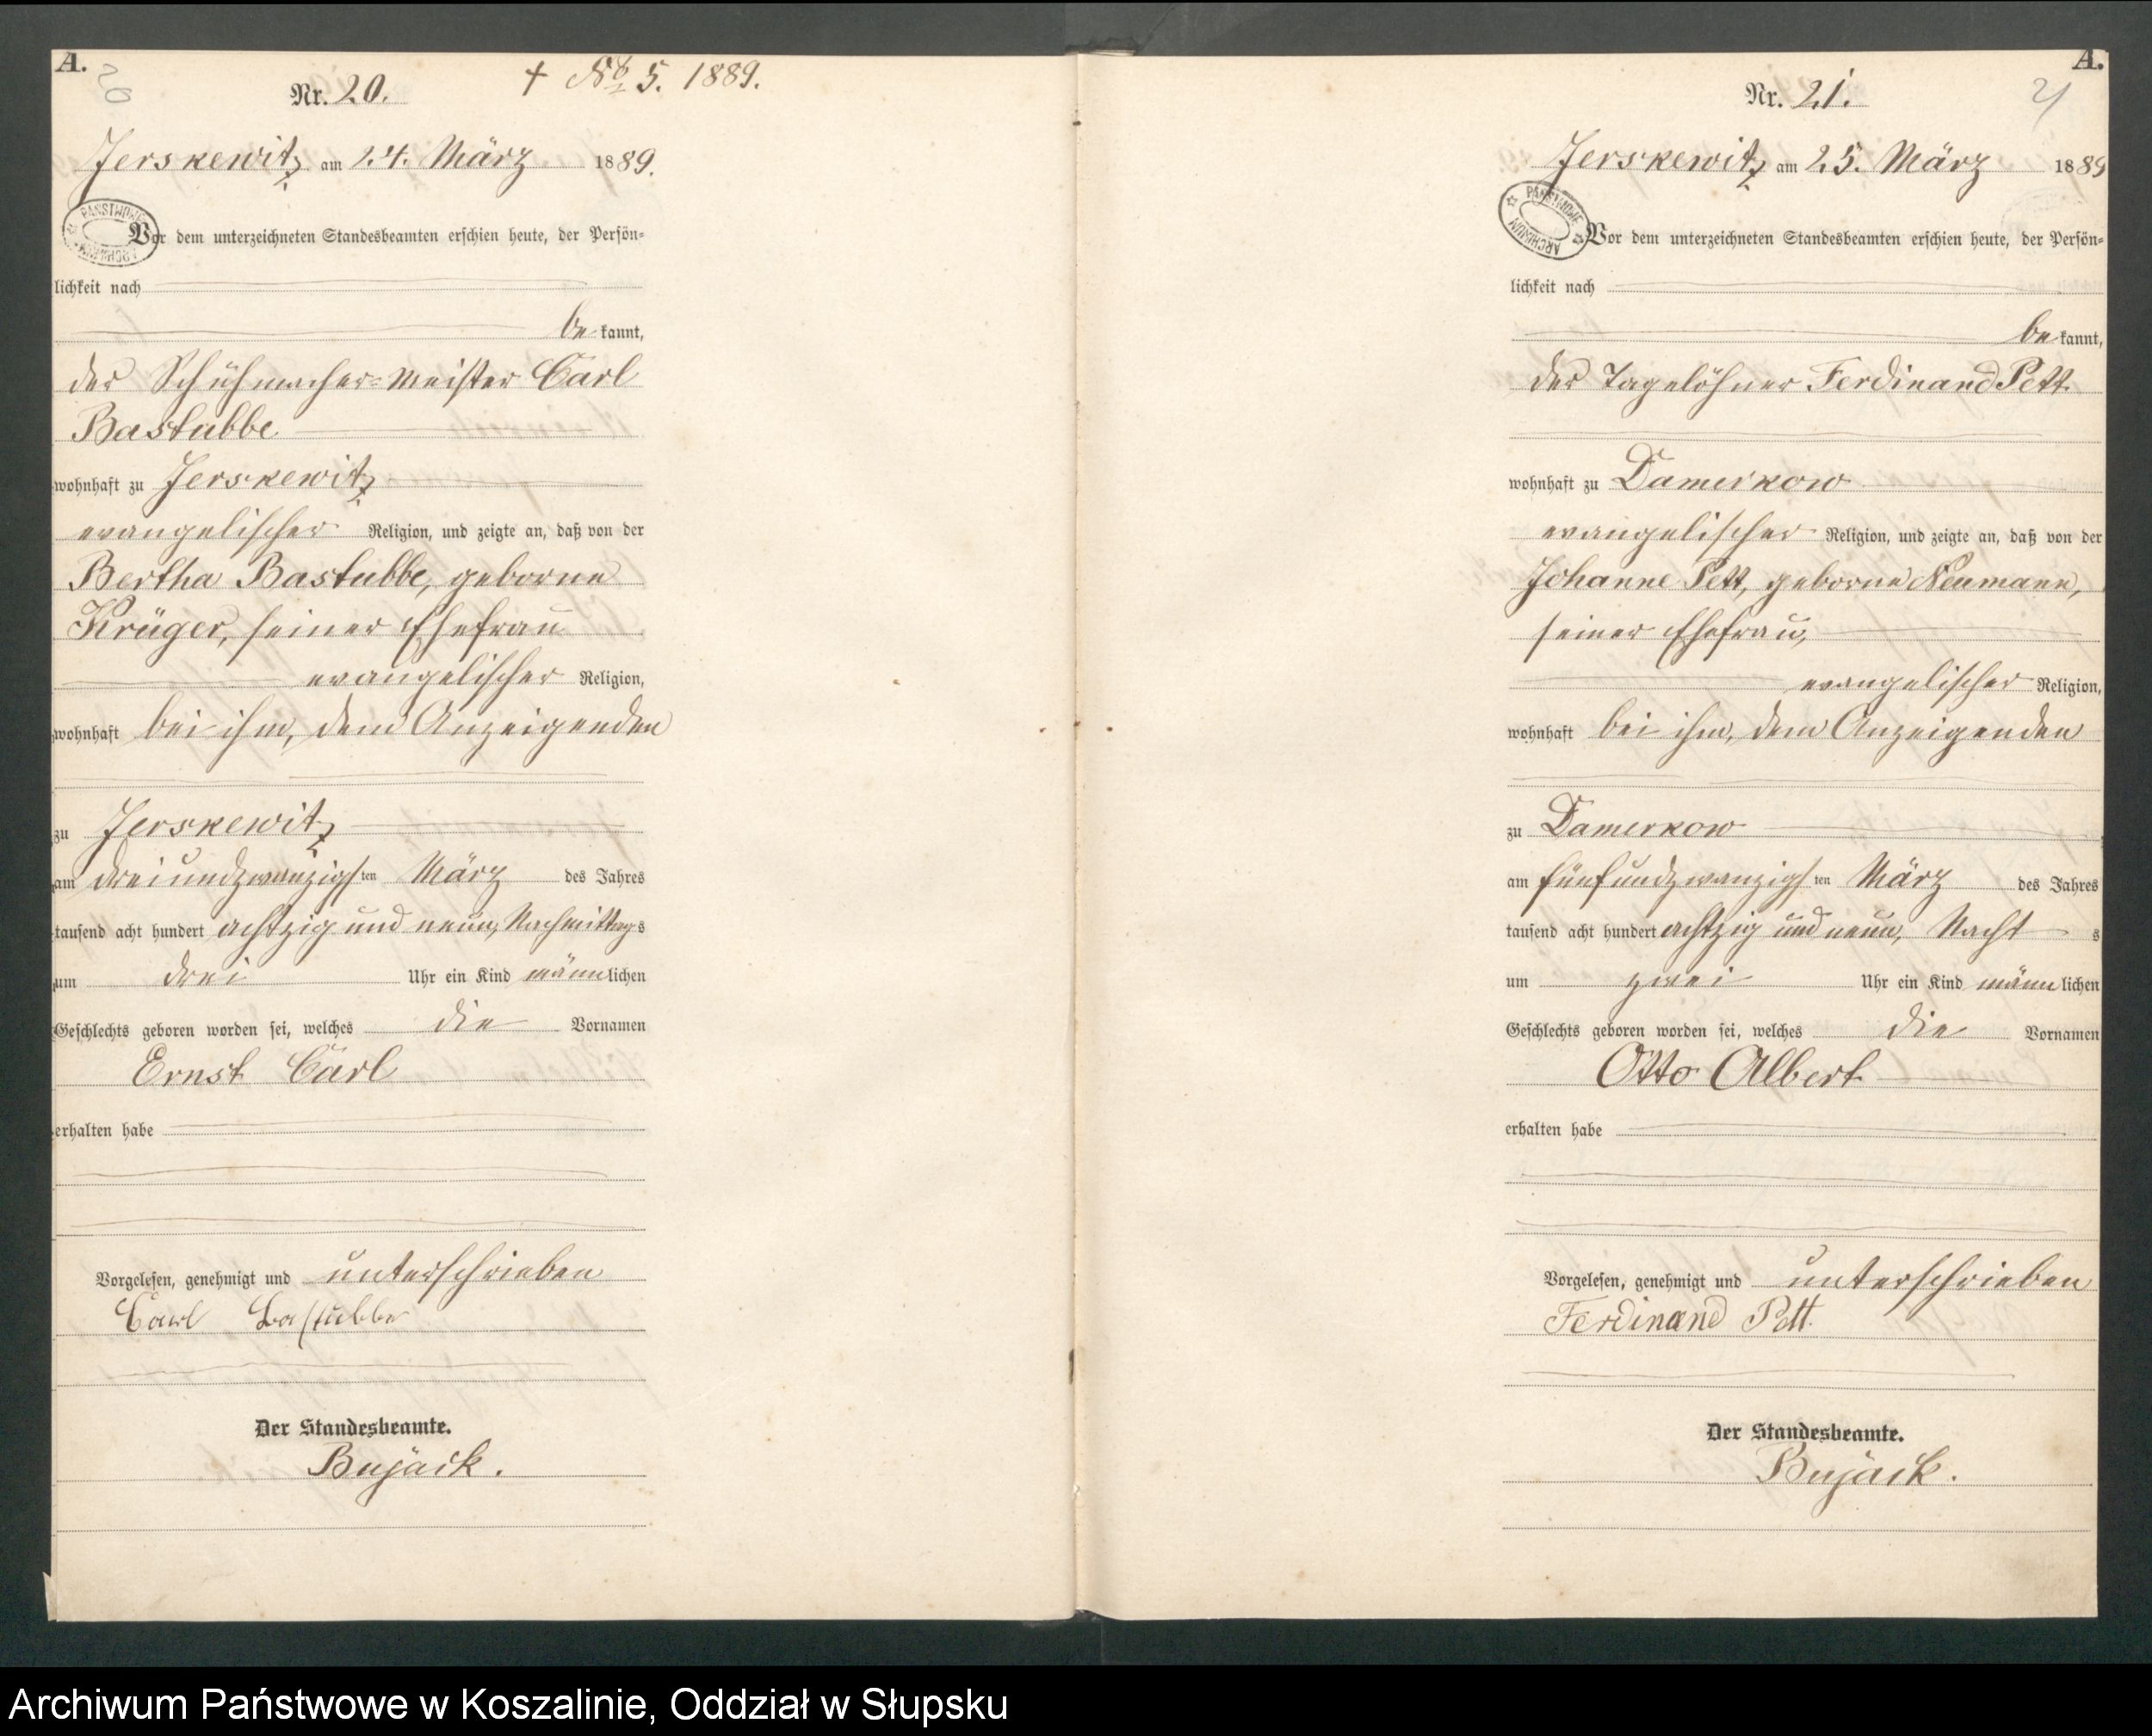 A.
20
Nr. 20.
† No 5. 1889.
Jerskewitz am 24. März 1889.
PAŃSTWOWE ARCHIWUM
Vor dem unterzeichneten Standesbeamten erschien heute, der Persön-
lichkeit nach
be kannt,
der Schuhmacher-Meister Carl
Bastubbe
wohnhaft zu Jerskewitz
evangelischer Religion, und zeigte an, daß von der
Bertha Bastubbe, geborne
Krüger, seiner Ehefrau
evangelischer Religion,
wohnhaft bei ihm, dem Anzeigenden
zu Jerskewitz
am dreiundzwanzigsten März des Jahres
tausend acht hundert achtzig und neun, Nachmittags
um drei Uhr ein Kind männlichen
Geschlechts geboren worden sei, welches die Vornamen
Ernst Carl
erhalten habe
Vorgelesen, genehmigt und unterschrieben
Carl Bastubbe
Der Standesbeamte.
Bujack.
A.
21
Nr. 21.
Jerskewitz am 25. März 1889
PAŃSTWOWE ARCHIWUM
Vor dem unterzeichneten Standesbeamten erschien heute, der Persön-
lichkeit nach
be kannt,
der Tagelöhner Ferdinand Pett
wohnhaft zu Damerkow
evangelischer Religion, und zeigte an, daß von der
Johanne Pett, geborne Neumann,
seiner Ehefrau,
evangelischer Religion,
wohnhaft bei ihm, dem Anzeigenden
zu Damerkow
am fünfundzwanzigsten März des Jahres
tausend acht hundert achtzig und neun, Nacht s
um zwei Uhr ein Kind männlichen
Geschlechts geboren worden sei, welches die Vornamen
Otto Albert
erhalten habe
Vorgelesen, genehmigt und unterschrieben
Ferdinand Pett.
Der Standesbeamte.
Bujack.
Archiwum Państwowe w Koszalinie, Oddział w Słupsku